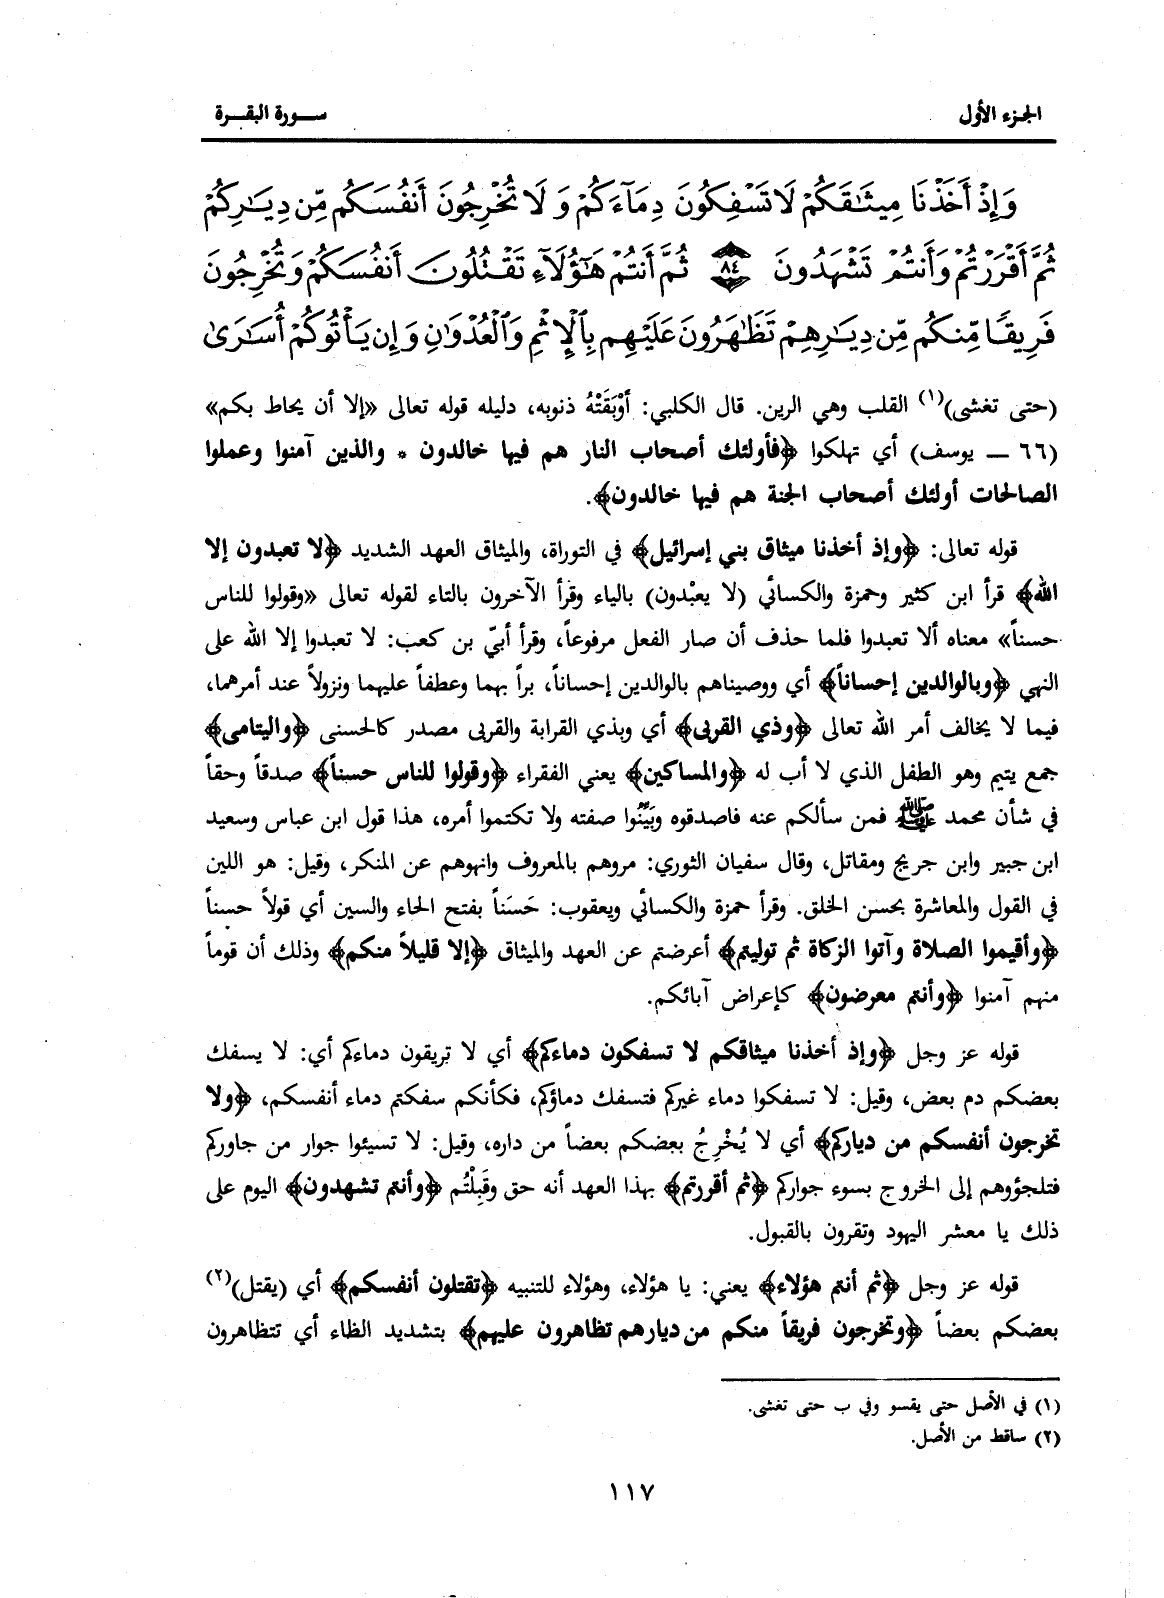 الجزء الأول
سورة البقرة
وَإِذْ أَخَذْنَا مِيثَٰقَكُمْ لَا تَسْفِكُونَ دِمَآءَكُمْ وَلَا تُخْرِجُونَ أَنفُسَكُم مِّن دِيَٰرِكُمْ
ثُمَّ أَقْرَرْتُمْ وَأَنتُمْ تَشْهَدُونَ ٨٤ ثُمَّ أَنتُمْ هَٰٓؤُلَآءِ تَقْتُلُونَ أَنفُسَكُمْ وَتُخْرِجُونَ
فَرِيقًا مِّنكُم مِّن دِيَٰرِهِمْ تَظَٰهَرُونَ عَلَيْهِم بِٱلْإِثْمِ وَٱلْعُدْوَٰنِ وَإِن يَأْتُوكُمْ أُسَٰرَىٰ
(حتى تغشى)(١) القلب وهي الرين. قال الكلبي: أَوْبَقَتْهُ ذنوبه، دليله قوله تعالى «إلا أن يحاط بكم»
(٦٦ — يوسف) أي تهلكوا ﴿فأولئك أصحاب النار هم فيها خالدون * والذين آمنوا وعملوا
الصالحات أولئك أصحاب الجنة هم فيها خالدون﴾.
قوله تعالى: ﴿وإذ أخذنا ميثاق بني إسرائيل﴾ في التوراة، والميثاق العهد الشديد ﴿لا تعبدون إلا
الله﴾ قرأ ابن كثير وحمزة والكسائي (لا يعبْدون) بالياء وقرأ الآخرون بالتاء لقوله تعالى «وقولوا للناس
حسناً» معناه ألا تعبدوا فلما حذف أن صار الفعل مرفوعاً، وقرأ أبيّ بن كعب: لا تعبدوا إلا الله على
النهي ﴿وبالوالدين إحساناً﴾ أي ووصيناهم بالوالدين إحساناً، براً بهما وعطفاً عليهما ونزولاً عند أمرهما،
فيما لا يخالف أمر الله تعالى ﴿وذي القربى﴾ أي وبذي القرابة والقربى مصدر كالحسنى ﴿واليتامى﴾
جمع يتيم وهو الطفل الذي لا أب له ﴿والمساكين﴾ يعني الفقراء ﴿وقولوا للناس حسناً﴾ صدقاً وحقاً
في شأن محمد ﷺ فمن سألكم عنه فاصدقوه وبَيِّنُوا صفته ولا تكتموا أمره، هذا قول ابن عباس وسعيد
ابن جبير وابن جريج ومقاتل، وقال سفيان الثوري: مروهم بالمعروف وانهوهم عن المنكر، وقيل: هو اللين
في القول والمعاشرة بحسن الخلق. وقرأ حمزة والكسائي ويعقوب: حَسَناً بفتح الحاء والسين أي قولاً حسناً
﴿وأقيموا الصلاة وآتوا الزكاة ثم توليتم﴾ أعرضتم عن العهد والميثاق ﴿إلا قليلاً منكم﴾ وذلك أن قوماً
منهم آمنوا ﴿وأنتم معرضون﴾ كإعراض آبائكم.
قوله عز وجل ﴿وإذ أخذنا ميثاقكم لا تسفكون دماءكم﴾ أي لا تريقون دماءكم أي: لا يسفك
بعضكم دم بعض، وقيل: لا تسفكوا دماء غيركم فتسفك دماؤكم، فكأنكم سفكتم دماء أنفسكم، ﴿ولا
تخرجون أنفسكم من دياركم﴾ أي لا يُخْرِجُ بعضكم بعضاً من داره، وقيل: لا تسيئوا جوار من جاوركم
فتلجؤوهم إلى الخروج بسوء جواركم ﴿ثم أقررتم﴾ بهذا العهد أنه حق وقَبِلْتُم ﴿وأنتم تشهدون﴾ اليوم على
ذلك يا معشر اليهود وتقرون بالقبول.
قوله عز وجل ﴿ثم أنتم هؤلاء﴾ يعني: يا هؤلاء، وهؤلاء للتنبيه ﴿تقتلون أنفسكم﴾ أي (يقتل)(٢)
بعضكم بعضاً ﴿وتخرجون فريقاً منكم من ديارهم تظاهرون عليهم﴾ بتشديد الظاء أي تتظاهرون
(١) في الأصل حتى يقسو وفي ب حتى تغشى.
(٢) ساقط من الأصل.
١١٧